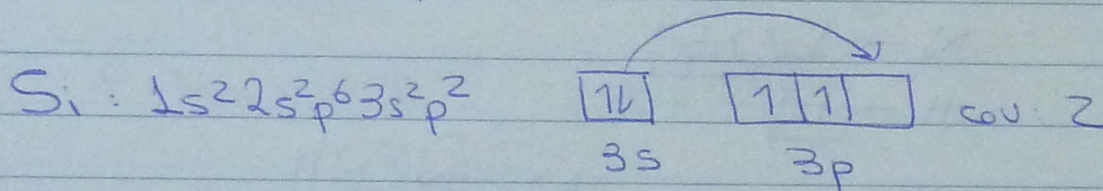 Si : 1s²2s²p⁶3s²p² 1⇂ 1 1 cov. 2
3s 3p